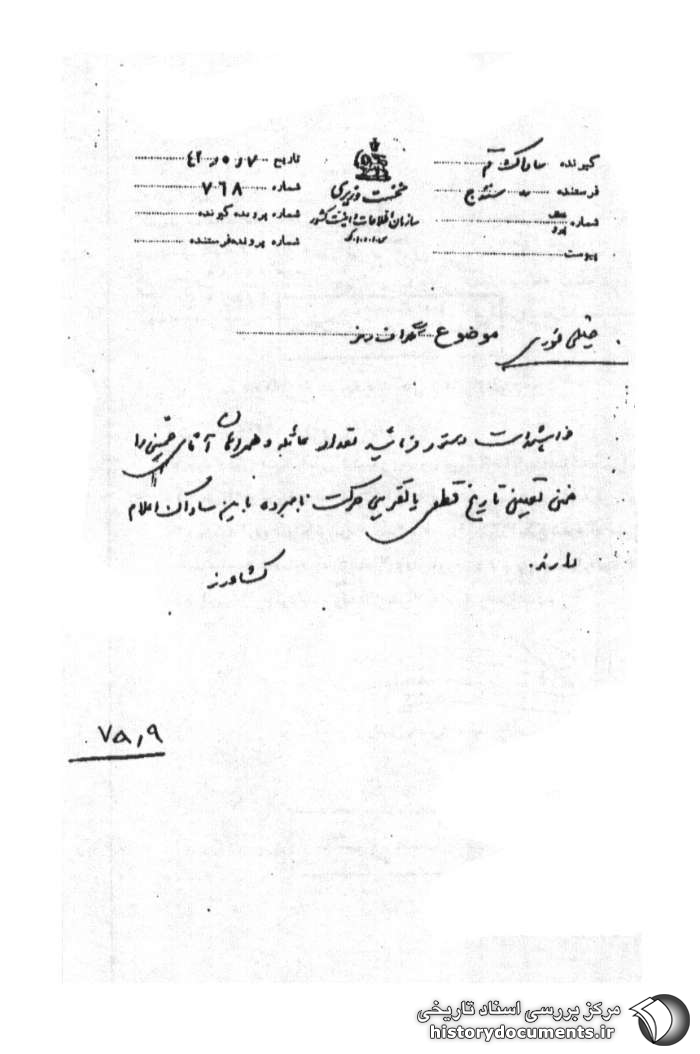 گیرنده ساواک قم
فرستنده سنندج
شماره
پیوست
نخست وزیری
سازمان اطلاعات و امنیت کشور
س.ا.و.ا.ک
تاریخ ۷ ر ۵ ر ۴۲
شماره ۷۶۸
شماره پرونده گیرنده
شماره پرونده فرستنده
خیلی فوری موضوع تلگراف رمز
خواهشمند است دستور فرمائید تعداد عائله و همراهان آقای حسینی را
ضمن تعیین تاریخ قطعی یا تقریبی حرکت نامبرده باین ساواک اعلام
دارند.
کشاورز
۷۵٫۹
مرکز بررسی اسناد تاریخی
historydocuments.ir